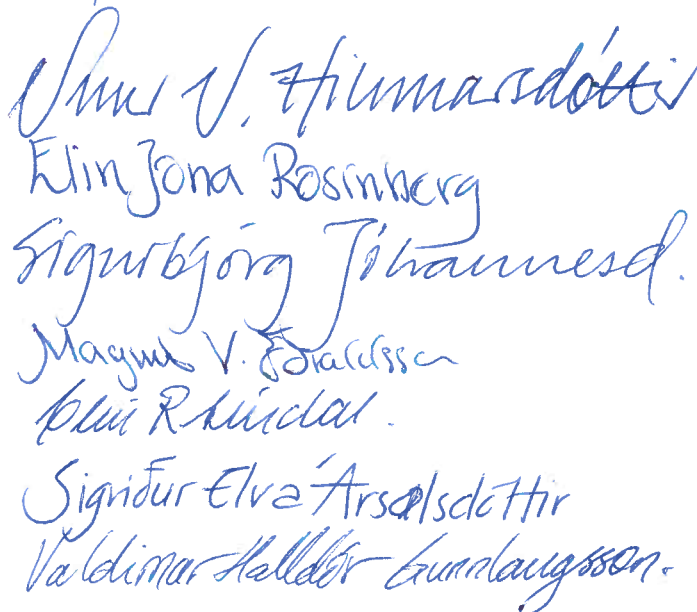 Unnur V. Hilmarsdóttir
Elin Jóna Rosinberg
Sigurbjörg Jóhannesd.
Magnus V.
R Lindal.
Sigriður Elva Ársælsdóttir
Valdimar Halldór Gunnlaugsson.